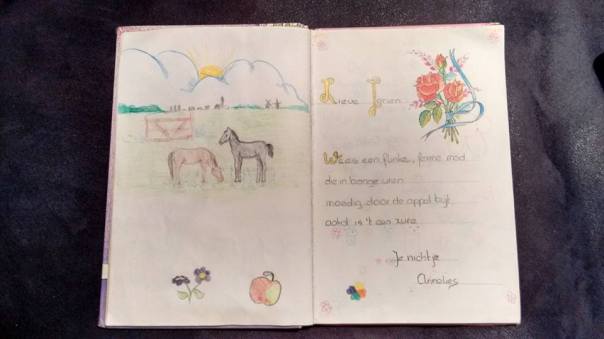 Lieve
Wees een flinke, ferme meid
die in bange uren
moedig door de appel bijt
ookal is 't een zure
Je nichtje
Annelies